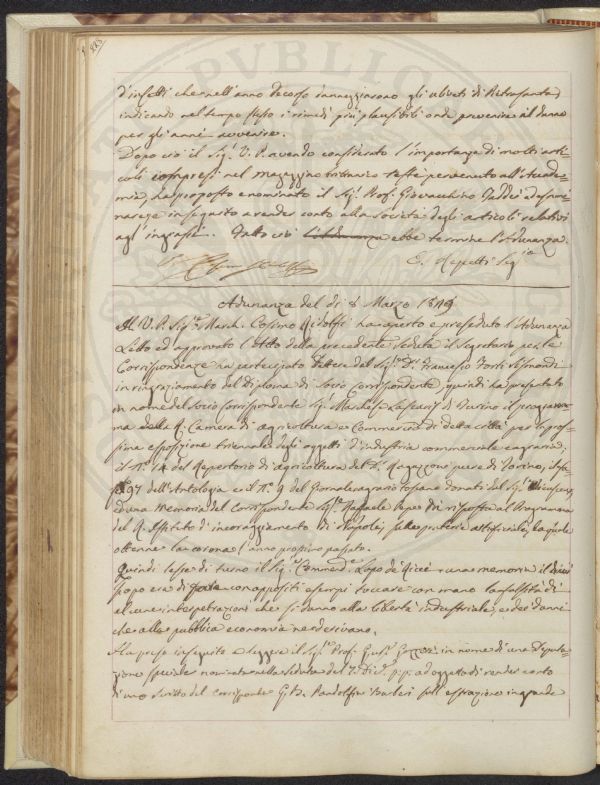 d'insetti che nell'anno decorso danneggiarono gli uliveti di Pietrasanta,
indicando nel tempo stesso i rimedi più plausibili onde prevenire il danno
per gli anni avvenire.
Dopo ciò il Sig.r V. P. avendo considerato l'importanza di molti arti-
coli compresi nel magazzino britannico testè pervenuto all'Accade-
mia, ha proposto e nominato il Sig.r Prof. Giovacchino Taddei ad esami-
nare e in seguito a render conto alla Società degli articoli relativi
agl'ingrassi. Fatto ciò ebbe termine l'Adunanza.
E. Repetti Seg.rio
Adunanza del dì 8 Marzo 1829
Il V. P. Sig.r March. Cosimo Ridolfi ha aperto e preseduto l'Adunanza
Letto ed approvato l'Atto della precedente, il Segretario per le
Corrispondenze ha partecipato lettere del Sig.r D.r Francesco Forti Sismondi
in ringraziamento del Diploma di Socio Corrispondente, quindi ha presentato
in nome del Socio Corrispondente Sig.r Marchese Lascaris di Torino il program-
ma della R. Camera di agricoltura e Commercio di detta città per la pros-
sima esposizione triennale degli oggetti d'industria commerciale e agraria;
il N.o 14 del Repertorio di agricoltura del D. Ragazzoni pure di Torino,
97 dell'Antologia e il N.o 9 del Giornale agrario toscano donati dal Sig.r Vieusseux
ed una Memoria del Corrispondente Sig.r Raffaele Pepe in risposta al Programma
del R. Istituto d'incoraggiamento di Napoli, sulle praterie artificiali, la quale
ottenne la corona l'anno prossimo passato.
Quindi lesse di turno il Sig.r Commend.e Lapo de' Ricci una memoria il di cui
scopo era di far con appositi esempi toccare con mano la falsità di
alcune interpretazioni che si danno alla libertà industriale, e dei danni
che alla pubblica economia ne derivano.
Ha preso in seguito a leggere il Sig.r Prof. Gius.e Gazzeri in nome di una Deputa-
zione speciale nominata nella seduta del 7 Dic.e p. p. ad oggetto di render conto
di uno scritto del Corrisponde G. B. Pandolfini Barberi sull'estrazione in grande